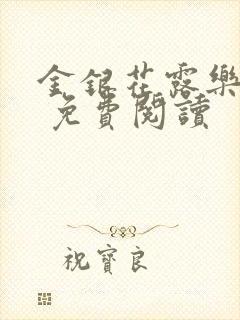 金銀花露樂
免費閱讀
祝寶良